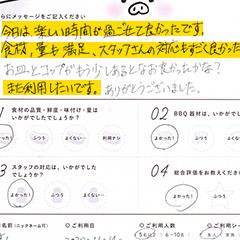 らメッセージをご記入ください
今日は楽しい時間が過ごせて良かったです。
食材、量も満足、スタッフさんの対応もすごく良かった
お皿とコップがもう少しあるとなお良かったかな?
また利用したいです。ありがとうございました。
1 食材の品質・鮮度・味付け・量はいかがでしたでしょうか?
よかった! ふつう よくない… 利用ナシ
02 BBQ 器材は、いかがで
よかった! ふつう
3 スタッフの対応は、いかがでしたでしょうか?
よかった! ふつう よくない…
04 総合評価をお教えくださ
よかった! ふつう
名前(ニックネーム可)
◎ご利用日
◎ご利用人数
5名以下・6〜10名
◎ご利用シー
友人